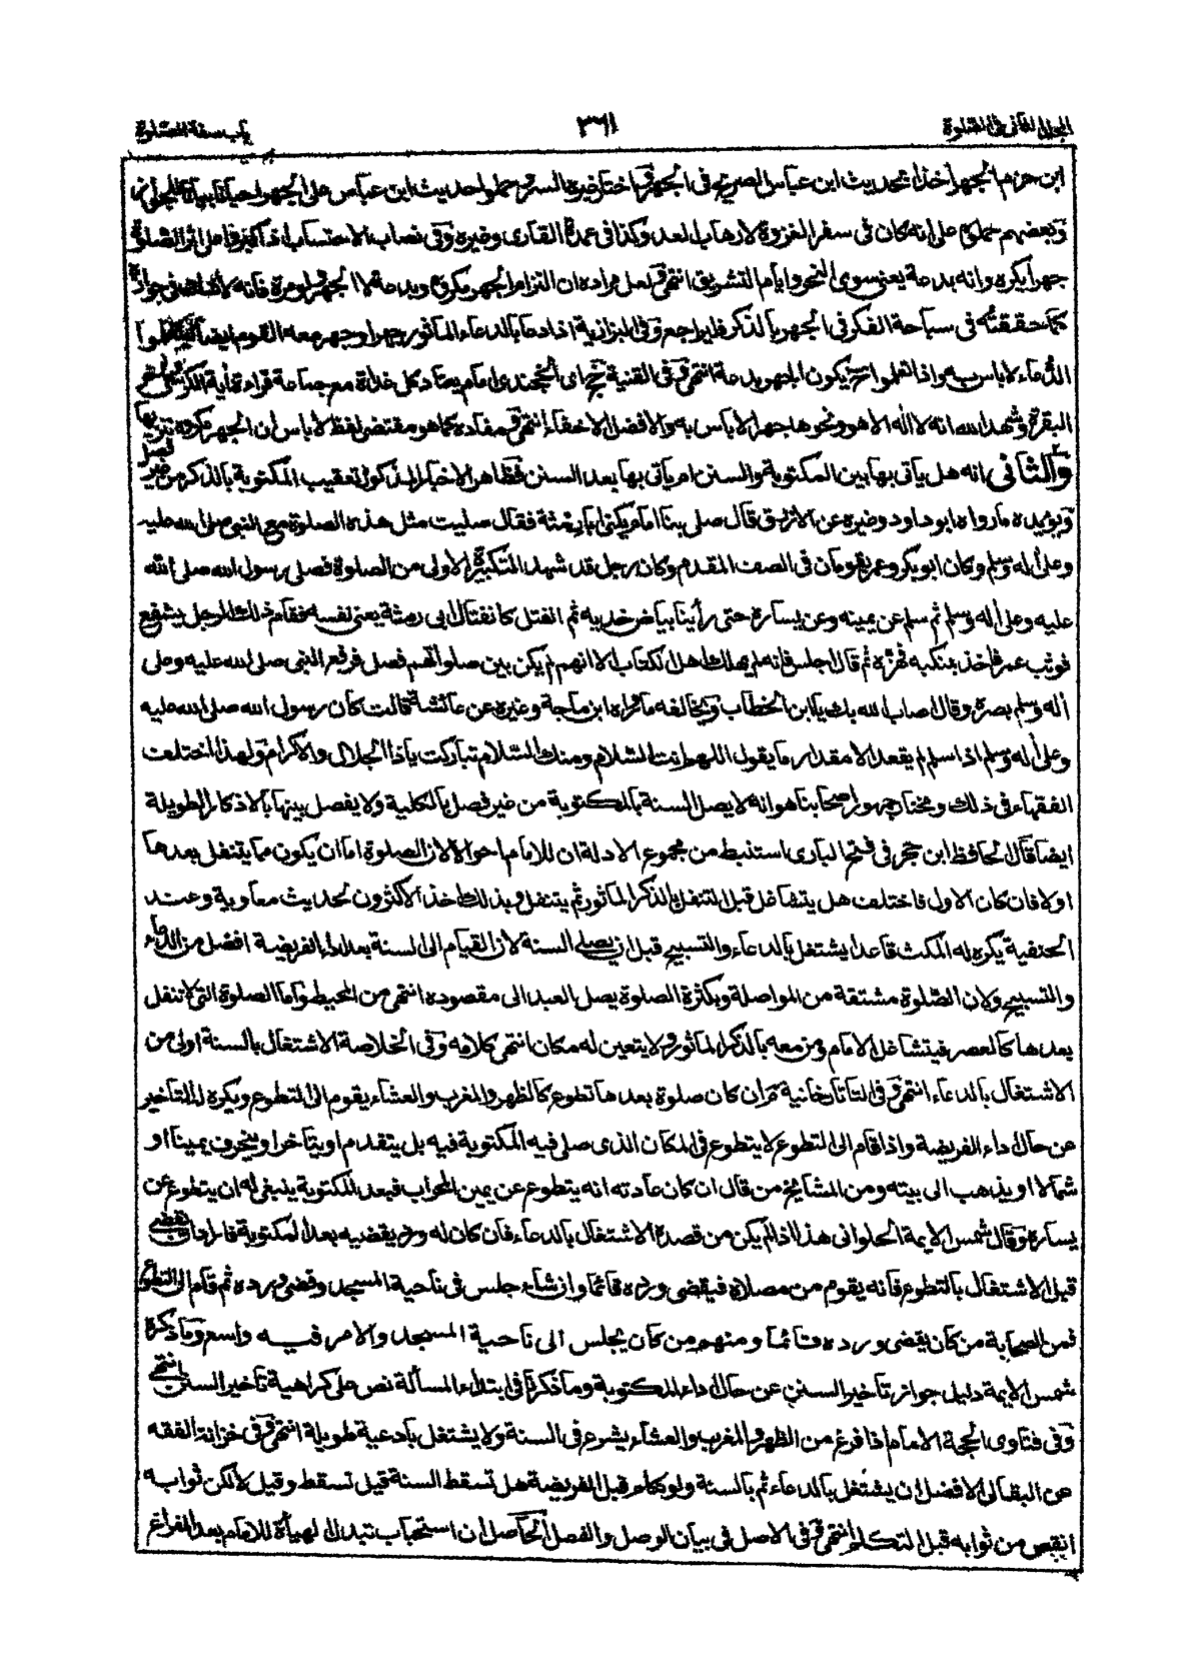 باب صفة الصلوة
٣٦١
المجلد الثانى فى الصلوة
ابن حزم الجهر اخذا بحديث ابن عباس الصريح فى الجهر واختار غيره السر وحملوا حديث ابن عباس على الجهر احيانا بيانا للجواز
وبعضهم حملوه على انه كان فى سفر الغزوة لارهاب العدو وكذا فى عمدة القارى وغيره وفى نصاب الاحتساب اذا كبروا على اثر الصلوة
جهرا يكره وانه بدعة يعنى سوى النحر وايام التشريق انتهى ولعل مراده ان التزام الجهر مكروه وبدعة لا الجهر ولو مرة فانه لا فى جوازه
كما حققته فى سباحة الفكر فى الجهر بالذكر فليراجع وفى البزازية اذا دعا بالدعاء المأثور جهرا وجهر معه القوم ايضا ليتعلموا
الدعاء لاباس به واذا تعلموا حينئذ يكون الجهر بدعة انتهى وفى القنية الخجندى امام يعتاد كل غداة مع جماعة قراءة أية الكرسى
البقرة وشهد الله انه لا اله الا هو ونحوها جهرا لاباس به والافضل الاخفاء انتهى ومفاده كما هو مقتضى لفظ لاباس ان الجهر مكروه تنزيها
والثانى انه هل يأتى بها بين المكتوبة والسنن ام يأتى بها بعد السنن فظاهر الاخبار المذكورة تعقيب المكتوبة بالذكر من غير فصل
ويؤيده ما رواه ابو داود وغيره عن الازرق قال صلى بنا امام يكنى ابا رمثة فقال صليت مثل هذه الصلوة مع النبى صلى الله عليه
وعلى أله وسلم وكان ابو بكر وعمر يقومان فى الصف المقدم وكان رجل قد شهد التكبيرة الاولى من الصلوة فصلى رسول الله صلى الله
عليه وعلى أله وسلم ثم سلم عن يمينه وعن يساره حتى رأينا بياض خديه ثم انفتل كانفتال ابى رمثة يعنى نفسه فقام ذلك الرجل يشفع
فوثب عمر فاخذ بمنكبه فهزه ثم قال اجلس فانه لم يهلك اهل الكتاب الا انهم لم يكن بين صلواتهم فصل فرفع النبى صلى الله عليه وعلى
أله وسلم بصره وقال اصاب الله بك يا ابن الخطاب ويخالفه ما رواه ابن ماجة وغيره عن عائشة قالت كان رسول الله صلى الله عليه
وعلى أله وسلم اذا سلم لم يقعد الا مقدار ما يقول اللهم انت السلام ومنك السلام تباركت يا ذا الجلال والاكرام ولهذا اختلف
الفقهاء فى ذلك ومختار جمهور اصحابنا هو انه لا يصل السنة بالمكتوبة من غير فصل بالكلية ولا يفصل بينها بالاذكار الطويلة
ايضا قال الحافظ ابن حجر فى فتح البارى استنبط من مجموع الادلة ان للامام احوالا لان الصلوة اما ان يكون مما يتنفل بعدها
اولا فان كان الاول فاختلف هل يتشاغل قبل التنفل بالذكر المأثور ثم يتنفل وبذلك اخذ الاكثرون لحديث معاوية وعند
الحنفية يكره له المكث قاعدا يشتغل بالدعاء والتسبيح قبل ان يصلى السنة لان القيام الى السنة بعد اداء الفريضة افضل من الدعاء
والتسبيح ولان الصلوة مشتقة من المواصلة وبكثرة الصلوة يصل العبد الى مقصوده انتهى من المحيط واما الصلوة التى لا تنفل
بعدها كالعصر فيتشاغل الامام ومن معه بالذكر المأثور ولا يتعين له مكان انتهى كلامه وفى الخلاصة الاشتغال بالسنة اولى من
الاشتغال بالدعاء انتهى وفى التاتارخانية ان كان صلوة بعدها تطوع كالظهر والمغرب والعشاء يقوم الى التطوع ويكره له التاخير
عن حال اداء الفريضة واذا قام الى التطوع لا يتطوع فى المكان الذى صلى فيه المكتوبة فيه بل يتقدم او يتأخر او ينحرف يمينا او
شمالا او يذهب الى بيته ومن المشايخ من قال ان كان عادته انه يتطوع عن يمين المحراب فبعد المكتوبة ينبغى له ان يتطوع عن
يساره وقال شمس الايمة الحلوانى هذا اذا لم يكن من قصده الاشتغال بالدعاء فان كان له ورد يقضيه بعد المكتوبة فاراد ان يقضى
قبل الاشتغال بالتطوع فانه يقوم من مصلاه فيقضى ورده قائما وان شاء جلس فى ناحية المسجد وقضى ورده ثم قام الى التطوع
فمن الصحابة من كان يقضى ورده قائما ومنهم من كان يجلس الى ناحية المسجد والامر فيه واسع وما ذكره
شمس الايمة دليل جواز تاخير السنن عن حال اداء المكتوبة وما ذكرنا فى ابتداء المسألة نص على كراهية تاخير السنن انتهى
وفى فتاوى الحجة الامام اذا فرغ من الظهر والمغرب والعشاء يشرع فى السنة ولا يشتغل بادعية طويلة انتهى وفى خزانة الفقه
عن البقالى الافضل ان يشتغل بالدعاء ثم بالسنة ولو تكلم قبل الفريضة هل تسقط السنة قيل تسقط وقيل لا لكن ثوابه
انقص من ثوابه قبل التكلم انتهى وفى الاصل فى بيان الوصل والفصل الحاصل ان استحباب تبدل الهيأة للامام بعد الفراغ